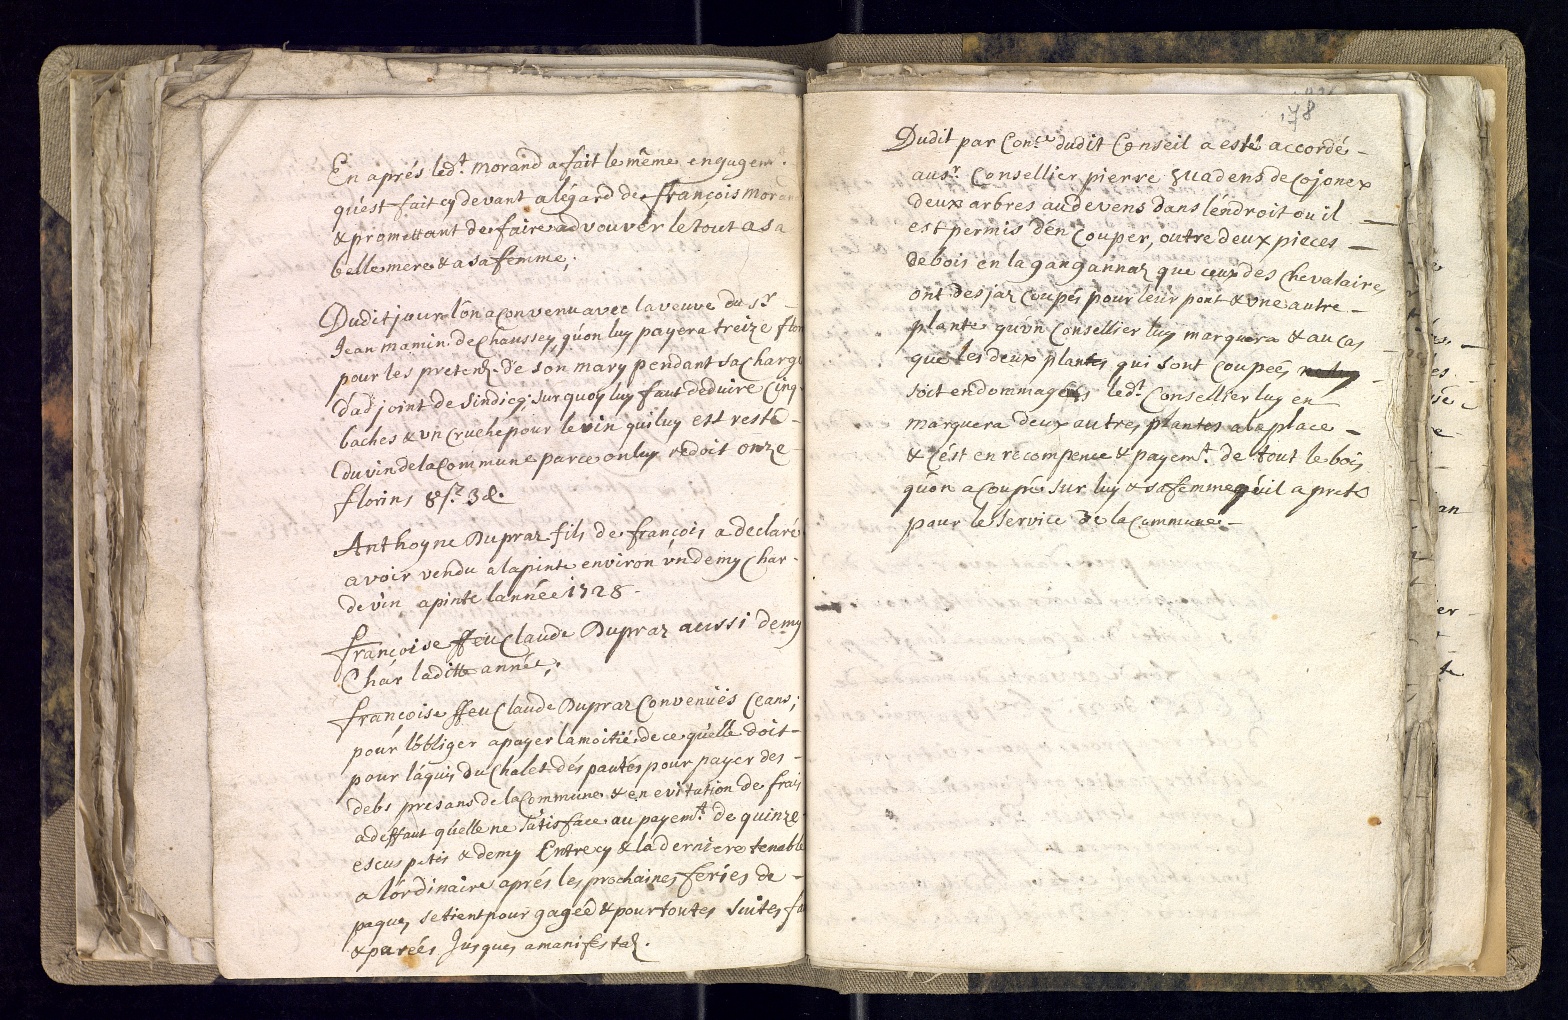 En aprés led.t morand a fait le même engagem.t
qu'est fait cy devant a légard de françois moran
& promettant de faire advouver le tout a sa
belle mere & a sa femme;
Dudit jour lón a convenu avec la veuve du s.r
Jean mamin de Chaussey, qu'on luy payera treize flor
pour les pretend. de son mary pendant sa charge
dadjoint de Sindicq; sur quoy luy faut déduire Cinq
baches & vn Cruche pour le vin qui luy est resté
du vin de la Commune parce on luy redoit onze
florins 8 s. 3 d.
Anthoyne Dupraz fils de françois a declaré
avoir vendu a lapinte environ vn demy Char
de vin apinte lannée 1728
françoise ffeu Claude Dupraz aussi demy
Char laditte année;
françoise ffeu Claude Dupraz Convenuës Ceans;
pour lóbliger a payer la moitié de ce qu'elle doit
pour láquis du Chalet des pautés pour payer des
debs presans de la Commune & en evitation de frais
a deffaut quélle ne satisface au payem.t de quinze
escus petis & demy Entrecy & la derniere tenable
a lórdinaire aprés les prochaines feries de
paques, se tient pour gagée & pour toutes suites fa
& parées Jusques a manifestaõn.
178
Dudit par Con.r dudit Conseil a esté accordé
au s.r Consellier pierre Quadens de Cojonex
deux arbres au devens dans léndroit ou il
est permis dén Couper, outre deux pieces
de bois en la gangannaz que ceux des Chevalaires
ont desjaz Coupés pour leur pont & vne autre
plante qu'vn Consellier luy marquera & au cas
que les deux plantes qui sont coupées
soit endommagées led.t Consellier luy en
marquera deux autres plantes a la place
& cést en recompence & payem.t de tout le bois
qu'on a coupé sur luy & sa femme quil a preté
pour le service de la Commune